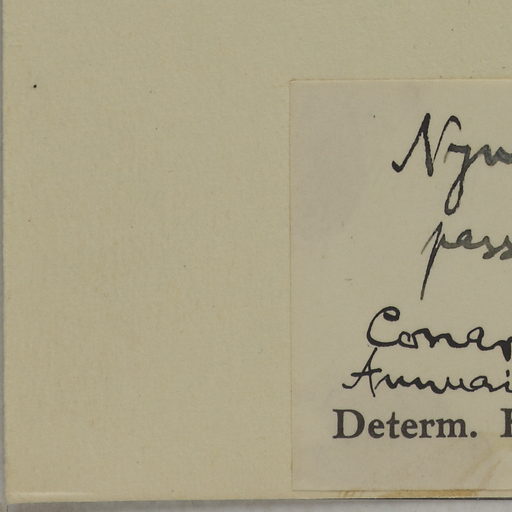 Nym
pass
Conar
Annuai
Determ.